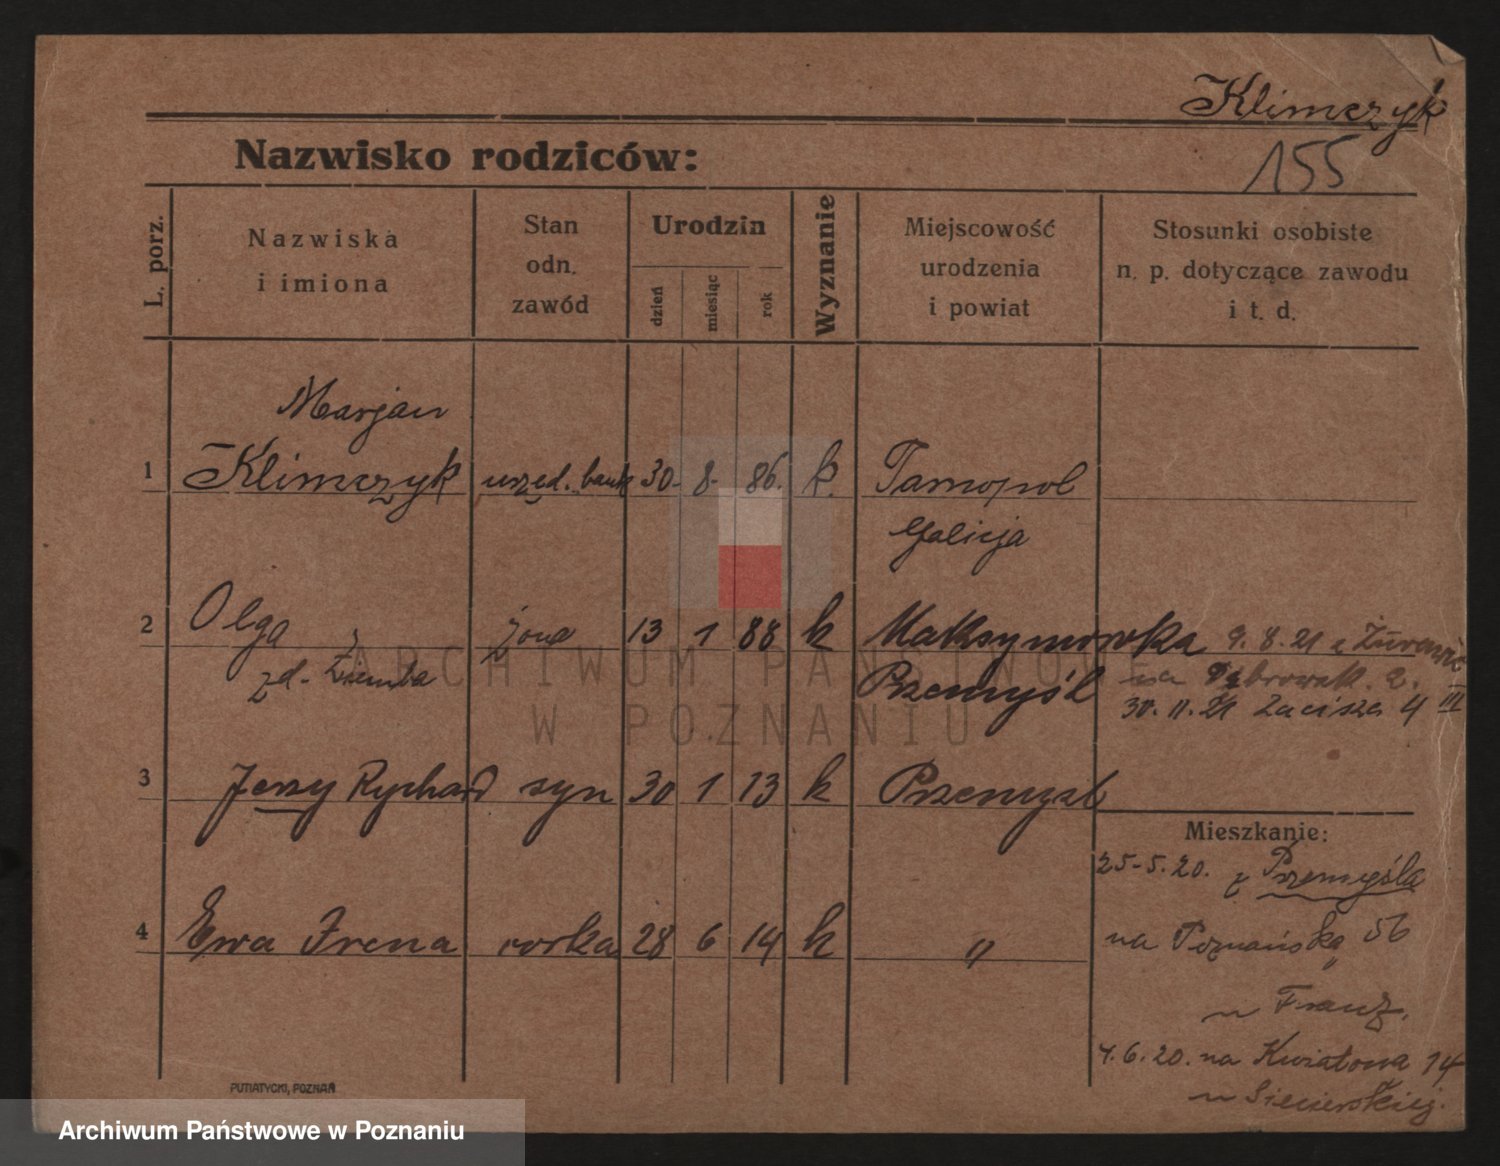 Klimczyk
Nazwisko rodziców:
155
L. porz.
Nazwiska
i imiona
Stan
odn.
zawód
Urodzin
dzień
miesiąc
rok
Wyznanie
Miejscowość
urodzenia
i powiat
Stosunki osobiste
n. p. dotyczące zawodu
i t. d.
Marjan
1 Klimczyk urzęd. bank 30- 8- 86. k. Tarnopol
Galicja
2 Olga żona 13 1 88 k Maksymowka 9.8.21 z
zd. Ziemba Przemyśl na Dąbrowsk. 2.
30.11.21 Zacisze 4 III
3 Jerzy Rychard syn 30 1 13 k Przemysl
Mieszkanie:
25-5.20. z Przemyśla
4 Ewa Irena corka 28 6 14 k "
na Poznańską 56
u Franz.
4.6.20. na Kwiatowa 14
u
PUTIATYCKI, POZNAŃ
ARCHIWUM PAŃSTWOWE
W POZNANIU
Archiwum Państwowe w Poznaniu